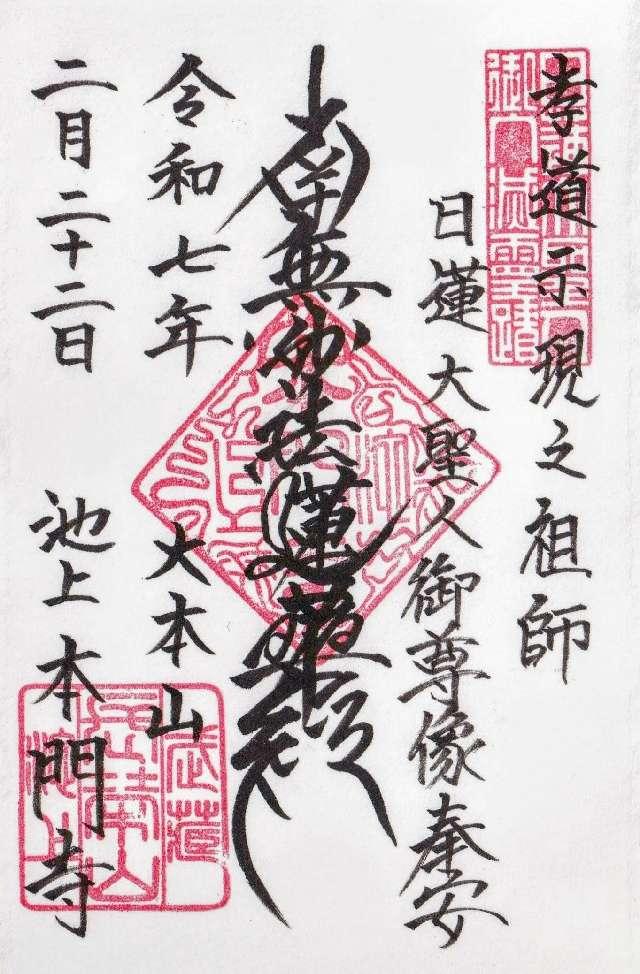 孝道示現之祖師
日蓮大聖人御尊像奉安
南無妙法蓮華経
令和七年
二月二十二日
大本山
池上本門寺
御入滅霊蹟